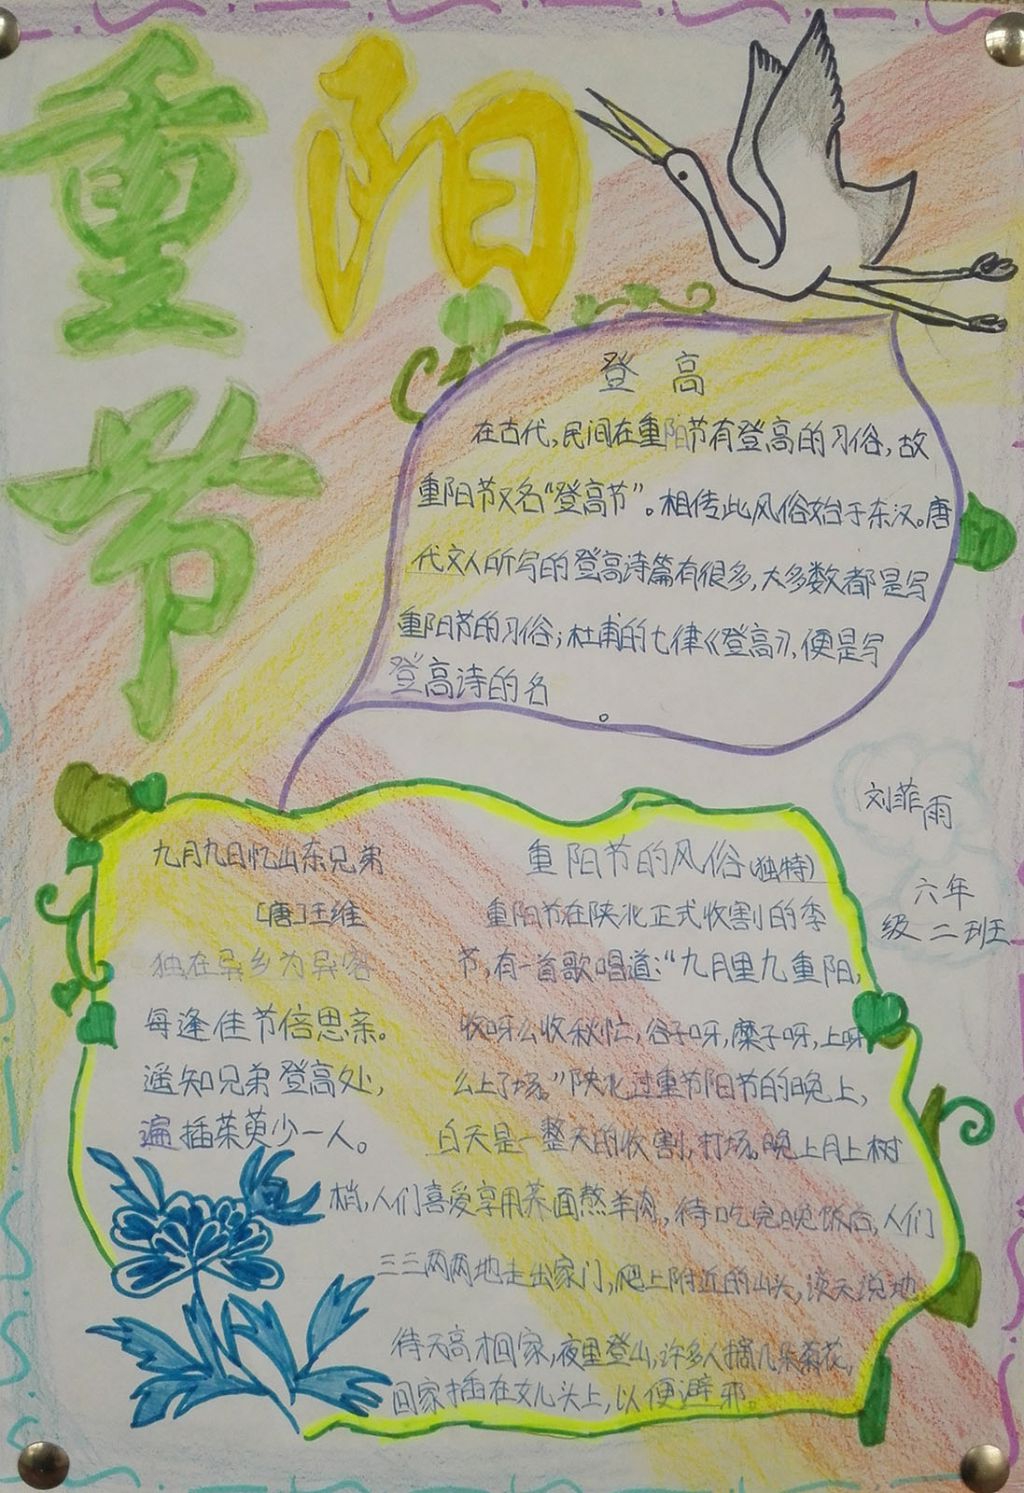 重阳
节
登高
在古代,民间在重阳节有登高的习俗,故
重阳节又名“登高节”。相传此风俗始于东汉。唐
代文人所写的登高诗篇有很多,大多数都是写
重阳节的习俗;杜甫的七律《登高》,便是写
登高诗的名
。
刘菲雨
六年
级二班
九月九日忆山东兄弟
[唐]王维
独在异乡为异客
每逢佳节倍思亲。
遥知兄弟登高处,
遍插茱萸少一人。
重阳节的风俗(独特)
重阳节在陕北正式收割的季
节,有一首歌唱道:“九月里九重阳,
收呀么收秋忙,谷子呀,糜子呀,上呀
么上了场。”陕北过重节阳节的晚上,
白天是一整天的收割,打场。晚上月上树
梢,人们喜爱享用荞面熬羊肉,待吃完晚饭后,人们
三三两两地走出家门,爬上附近的山头,谈天说地
待天高才回家,夜里登山,许多人摘几朵菊花,
回家插在女儿头上,以便避邪。